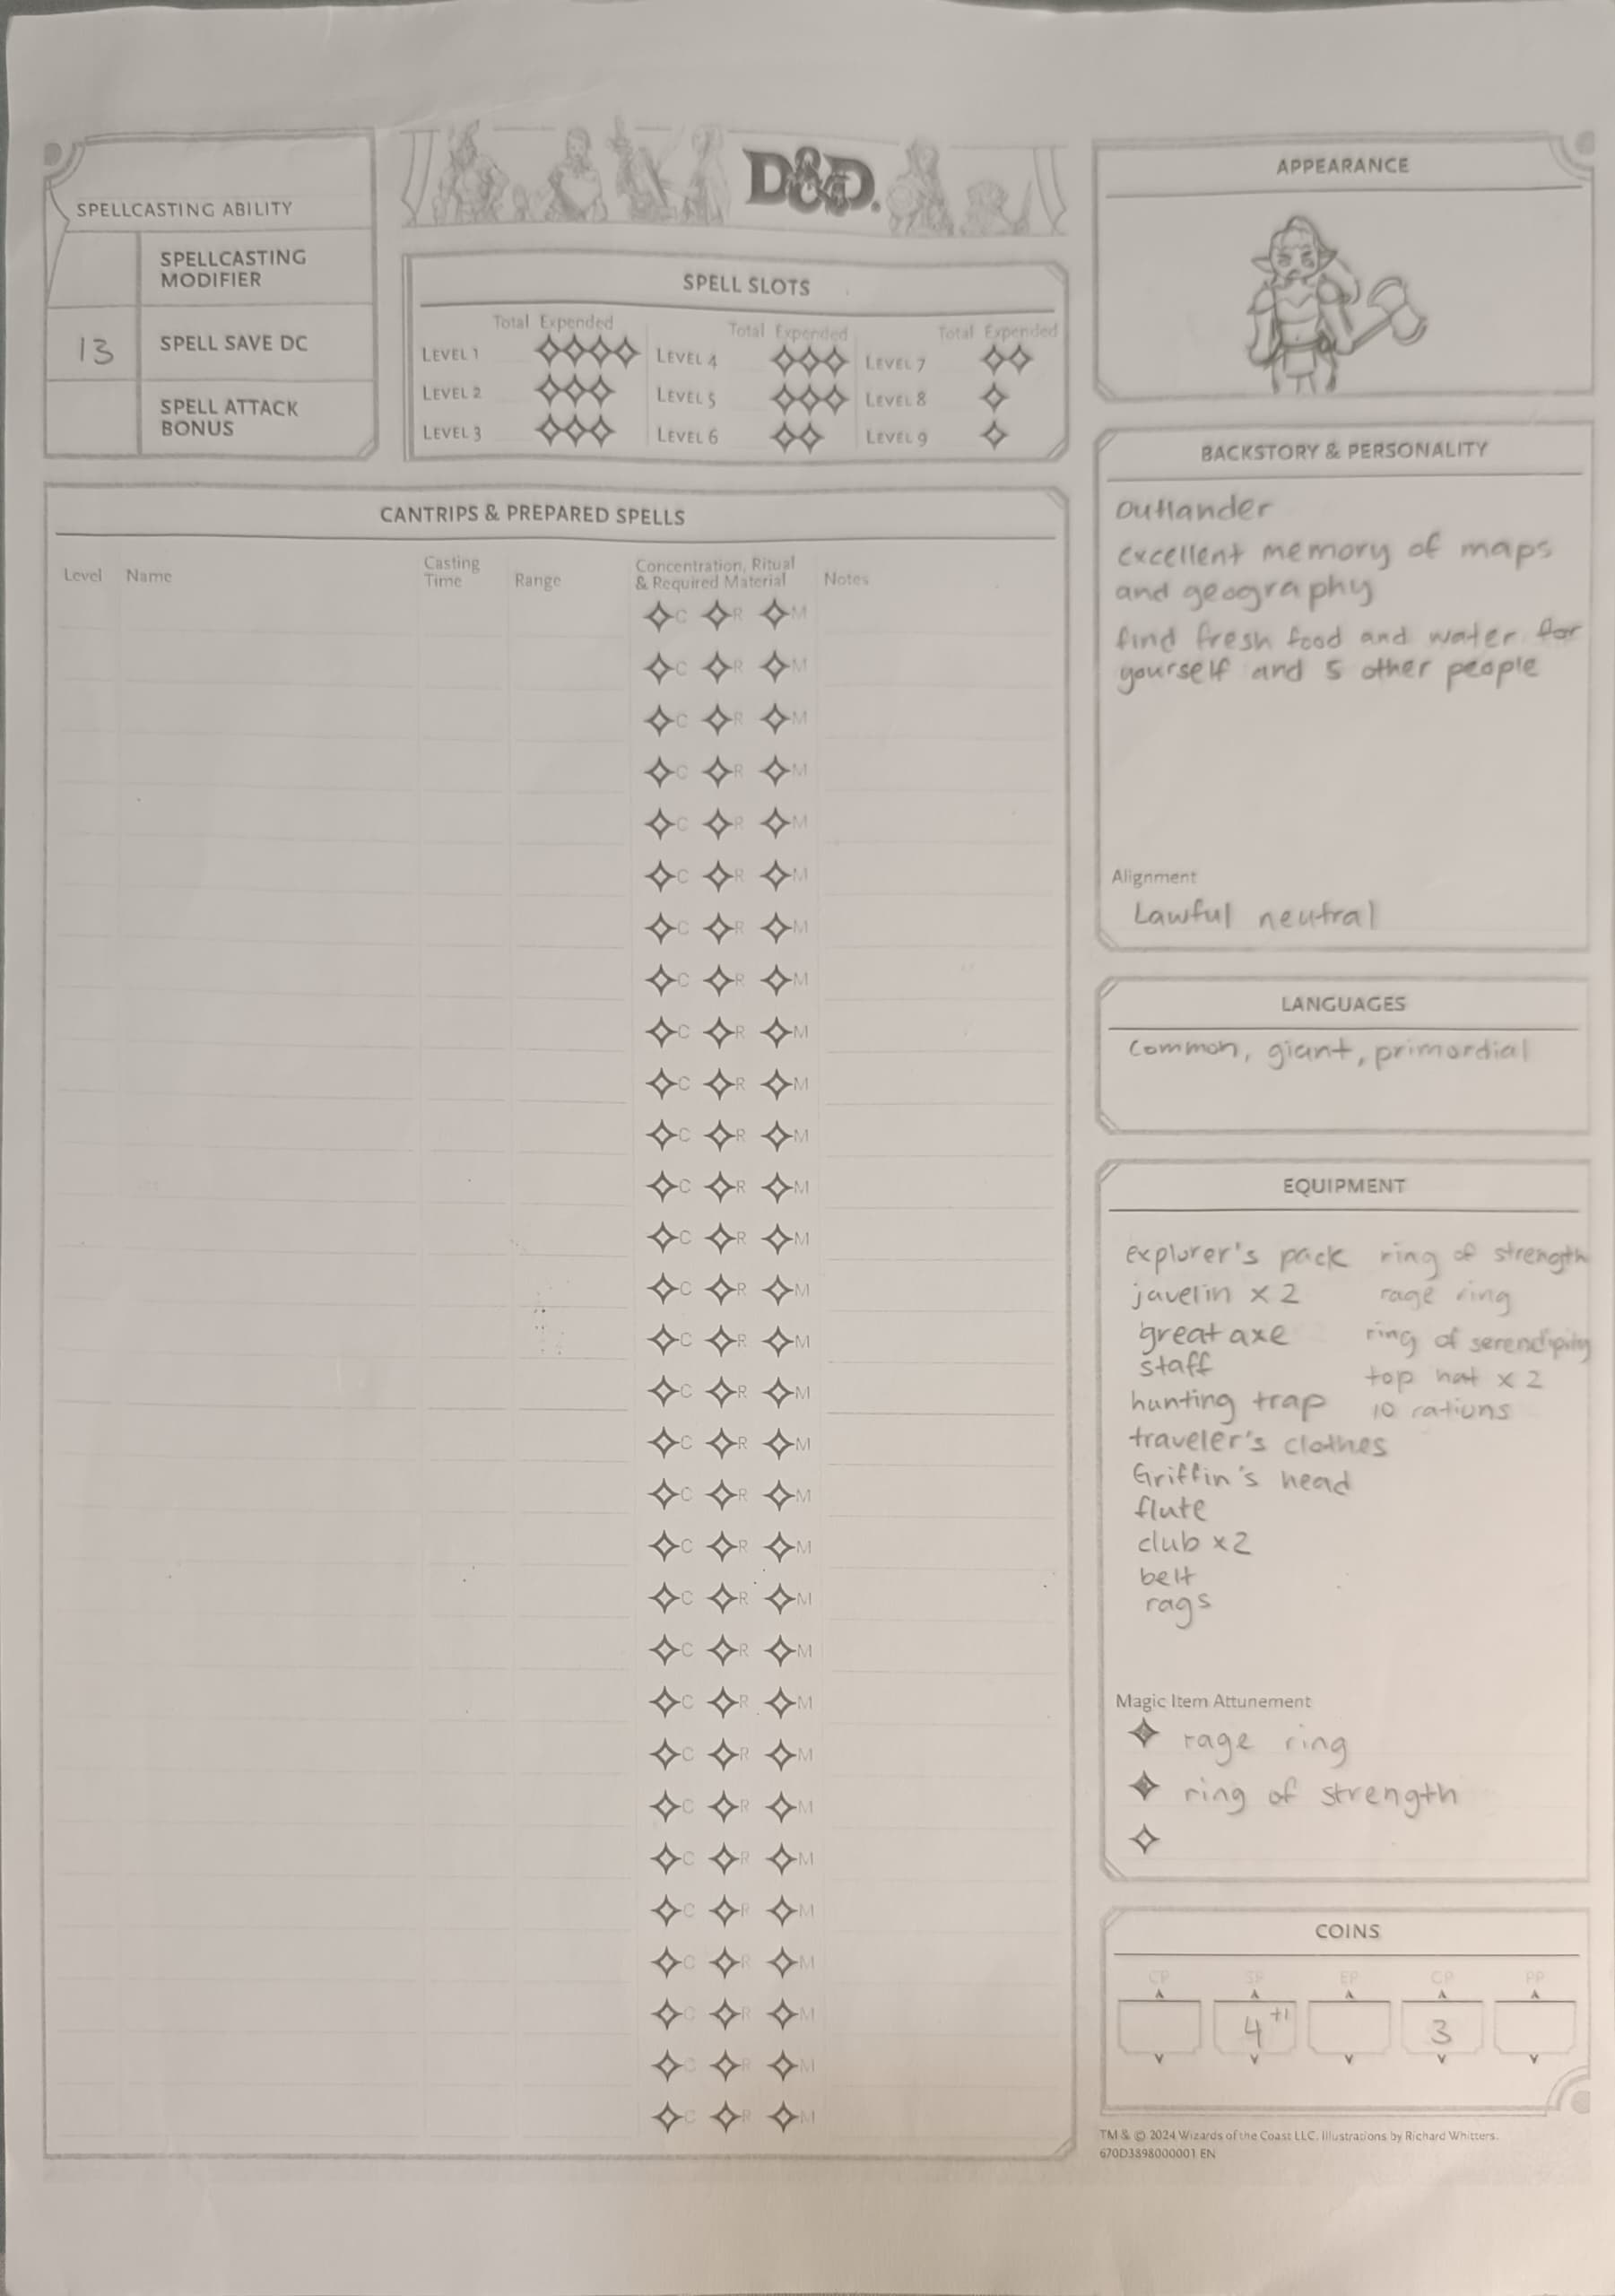 SPELLCASTING ABILITY
SPELLCASTING
MODIFIER
13 SPELL SAVE DC
SPELL ATTACK
BONUS
D&D
SPELL SLOTS
Total Expended Total Expended Total Expended
LEVEL 1 LEVEL 4 LEVEL 7
LEVEL 2 LEVEL 5 LEVEL 8
LEVEL 3 LEVEL 6 LEVEL 9
CANTRIPS & PREPARED SPELLS
Level Name Casting Time Range Concentration, Ritual & Required Material Notes
C R M
C R M
C R M
C R M
C R M
C R M
C R M
C R M
C R M
C R M
C R M
C R M
C R M
C R M
C R M
C R M
C R M
C R M
C R M
C R M
C R M
C R M
C R M
C R M
C R M
C R M
C R M
C R M
C R M
C R M
APPEARANCE
BACKSTORY & PERSONALITY
Outlander
excellent memory of maps
and geography
find fresh food and water for
yourself and 5 other people
Alignment
Lawful neutral
LANGUAGES
Common, giant, primordial
EQUIPMENT
explorer's pack ring of strength
javelin x 2 rage ring
great axe ring of serendipity
staff top hat x 2
hunting trap 10 rations
traveler's clothes
Griffin's head
flute
club x2
belt
rags
Magic Item Attunement
rage ring
ring of strength
COINS
CP SP EP GP PP
4 +1 3
TM & © 2024 Wizards of the Coast LLC. Illustrations by Richard Whitters.
670D3898000001 EN